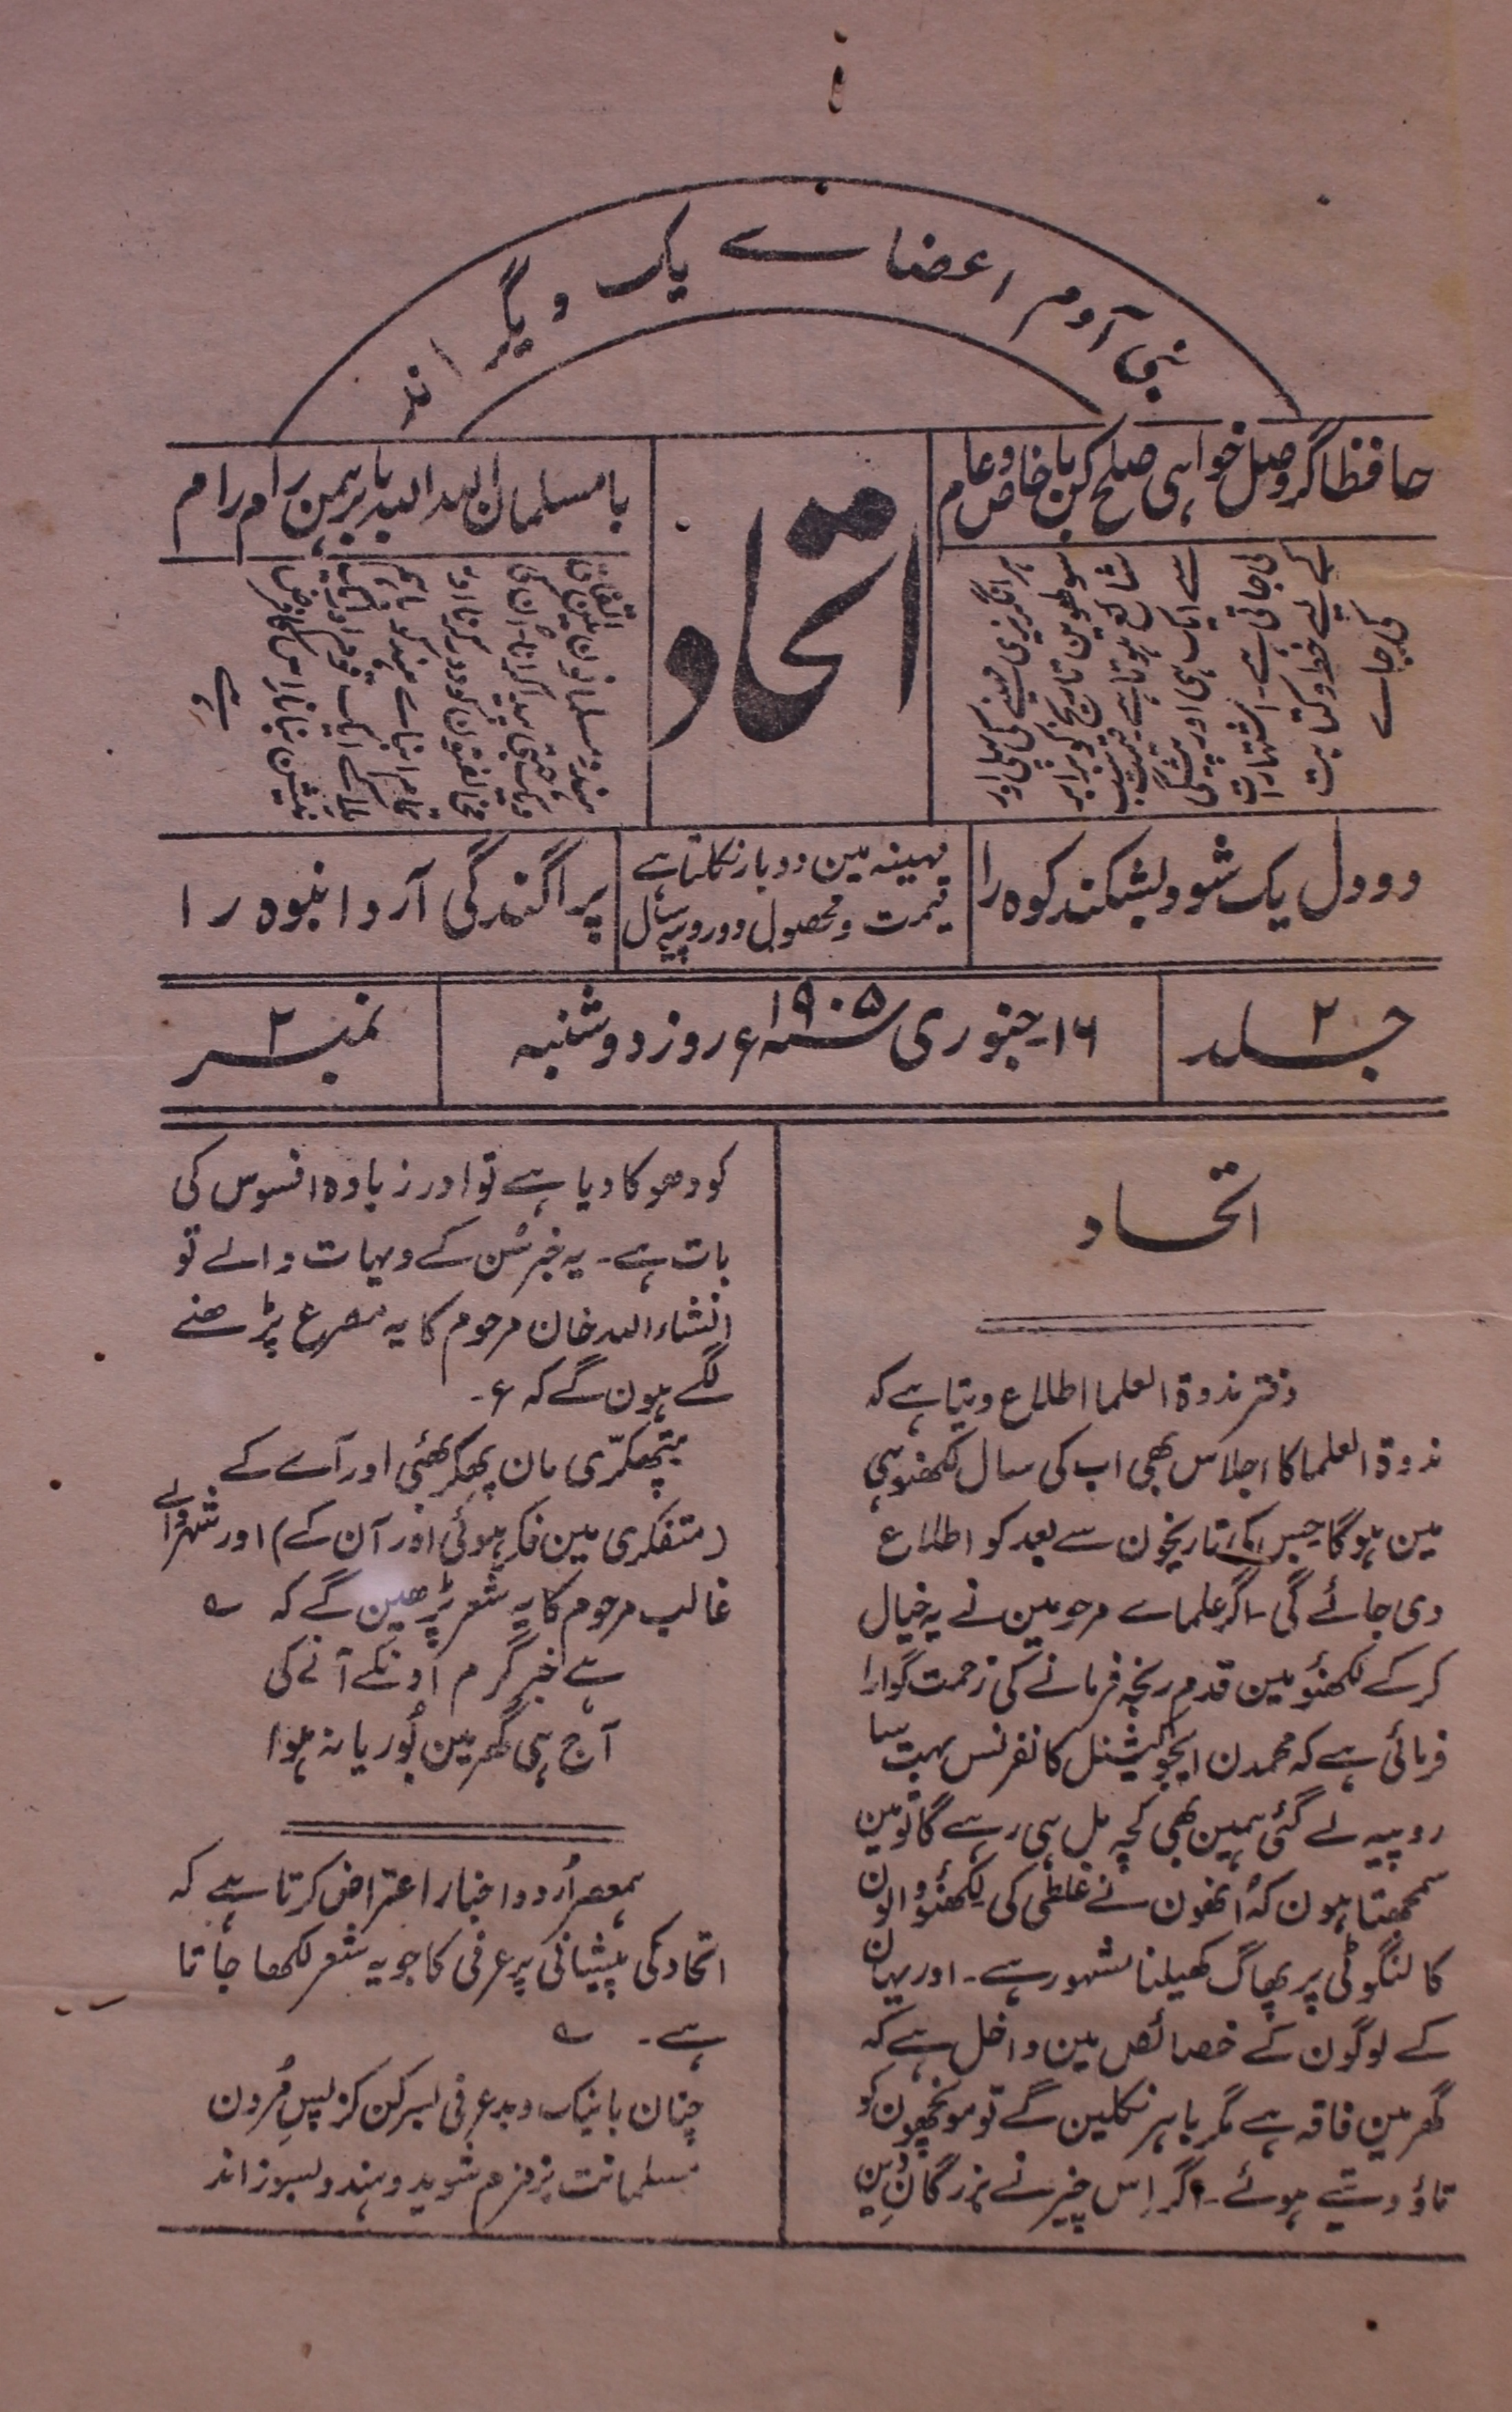 بنی آدم اعضاے یک دیگر اند
حافظا گر وصل خواہی صلح کن با خاص و عام
با مسلمان اللہ اللہ با برہمن رام رام
اتحاد
ہر انگریزی مہینے کی پہلی اور
سولھوین تاریخ کو برابر
شائع ہوتا ہے قیمت سب
سے ایک ہی اور پیشگی
لی جاتی ہے۔ اشتہارات
کے لیے خط و کتابت
کی جاے
ہندو مسلمانون مین اتفاق
دو دل یک شود بشکند کوہ را
مہینہ مین دو بار نکلتا ہے
قیمت و محصول دو روپیہ سال
پراگندگی آرد انبوہ را
جلد ۲
۱۶۔ جنوری سنہ ۱۹۰۵ء روز دوشنبہ
نمبر ۲
اتحاد
دفتر ندوۃ العلما اطلاع دیتا ہے کہ
ندوۃ العلما کا اجلاس بھی اب کی سال لکھنؤ ہی
مین ہو گا جس کی تاریخون سے بعد کو اطلاع
دی جائے گی۔ اگر علماے مرحومین نے یہ خیال
کر کے لکھنؤ مین قدم رنجہ فرمانے کی زحمت گوارا
فرمائی ہے کہ محمدن ایجوکیشنل کانفرنس بہت سا
روپیہ لے گئی ہمین بھی کچھ مل ہی رہے گا تو مین
سمجھتا ہون کہ اُنھون نے غلطی کی لکھنؤ والون
کا لنگوٹی پر پھاگ کھیلنا مشہور ہے۔ اور یہان
کے لوگون کے خصائص مین داخل ہے کہ
گھر مین فاقہ ہے مگر باہر نکلین گے تو مونچھون کو
تاؤ دیتے ہوئے۔ اگر اِس خیر نے بزرگانِ دین
کو دھوکا دیا ہے تو اور زیادہ افسوس کی
بات ہے۔ یہ خبر سُن کے دیہات والے تو
انشاء اللہ خان مرحوم کا یہ مصرع پڑھنے
لگے ہون گے کہ ع۔
متپھکرّی مان پھکر بھئی اور آے کے
(متفکری مین فکر ہوئی اور آن کے) اور شہر والے
غالب مرحوم کا یہ شعر پڑھین گے کہ ؎
ہے خبر گرم اونکے آنے کی
آج ہی گھر مین بُوریا نہ ہوا
ہمعصر اُردو اخبار اعتراض کرتا ہے کہ
اتحاد کی پیشانی پر عرفی کا جو یہ شعر لکھا جاتا
ہے۔ ؎
چنان با نیک و بد عرفی بسر کن کز پسِ مُردن
مسلمانت بزمزم شوید و ہندو بسوزاند